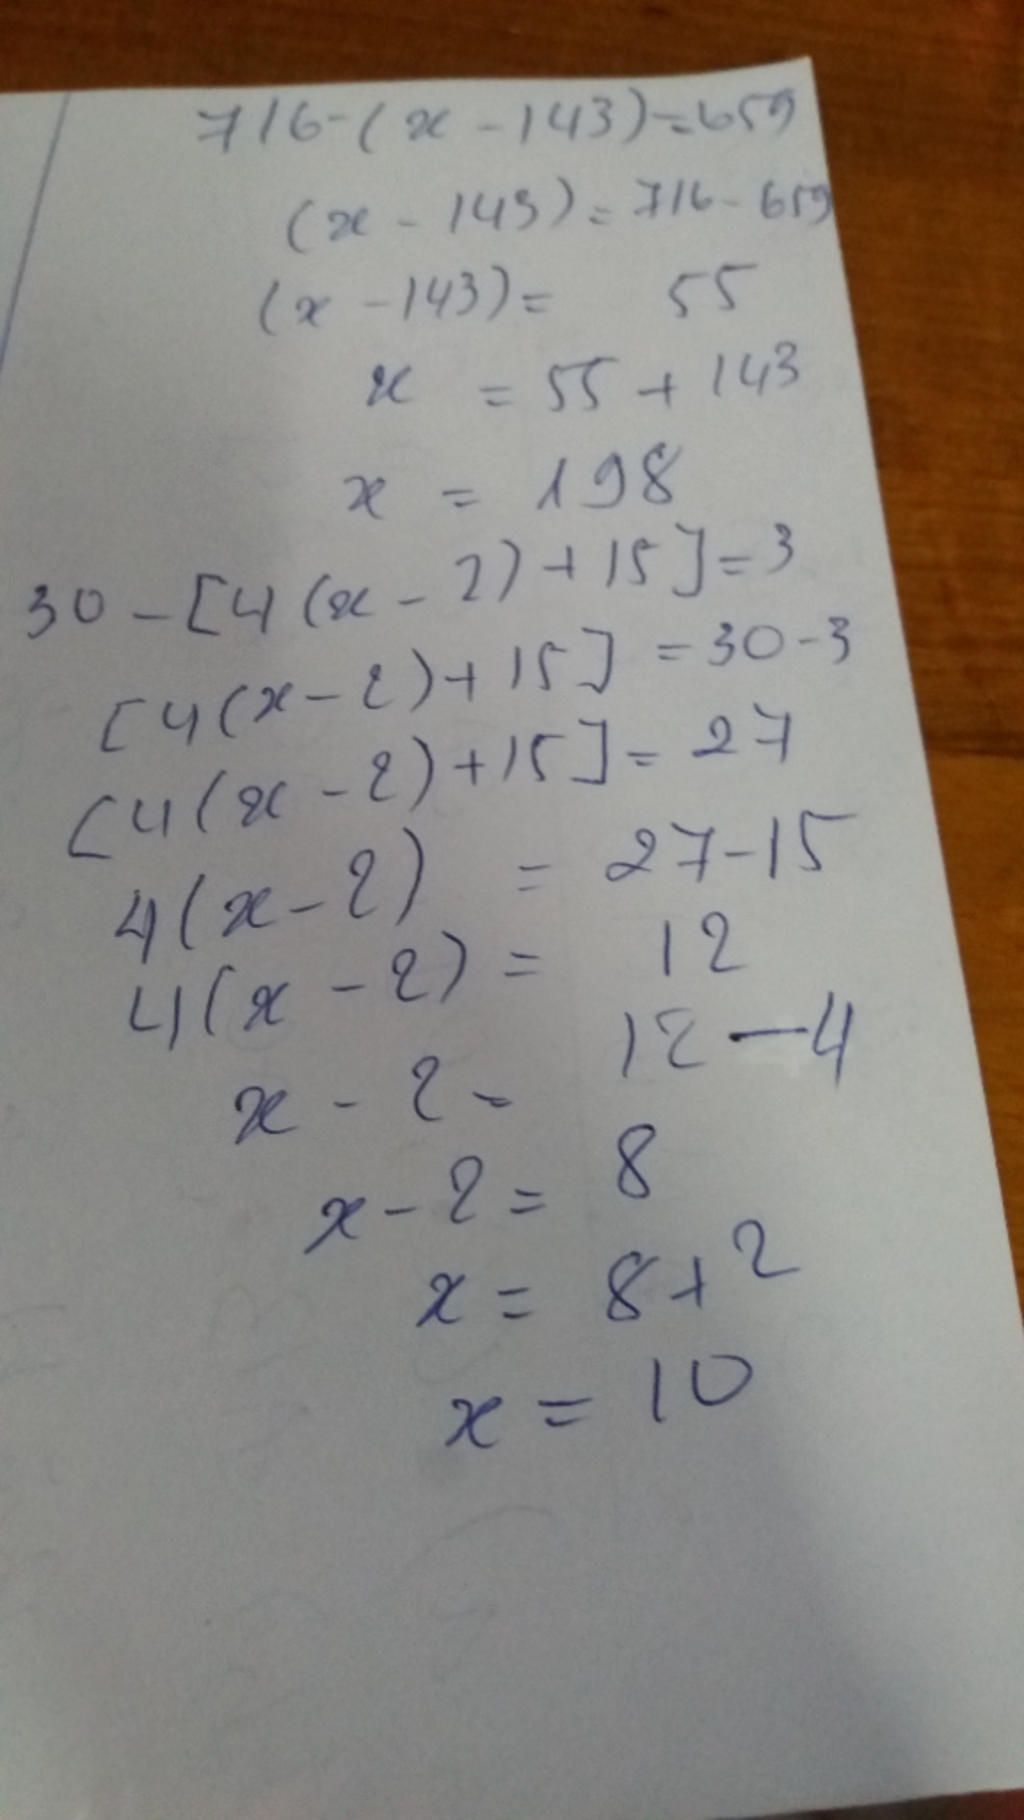 716-(x-143)=659
(x-143)=716-659
(x-143)= 55
x = 55+143
x = 198
30-[4(x-2)+15]=3
[4(x-2)+15]=30-3
[4(x-2)+15]=27
4(x-2) = 27-15
4(x-2)= 12
x-2- 12-4
x-2= 8
x= 8+2
x = 10